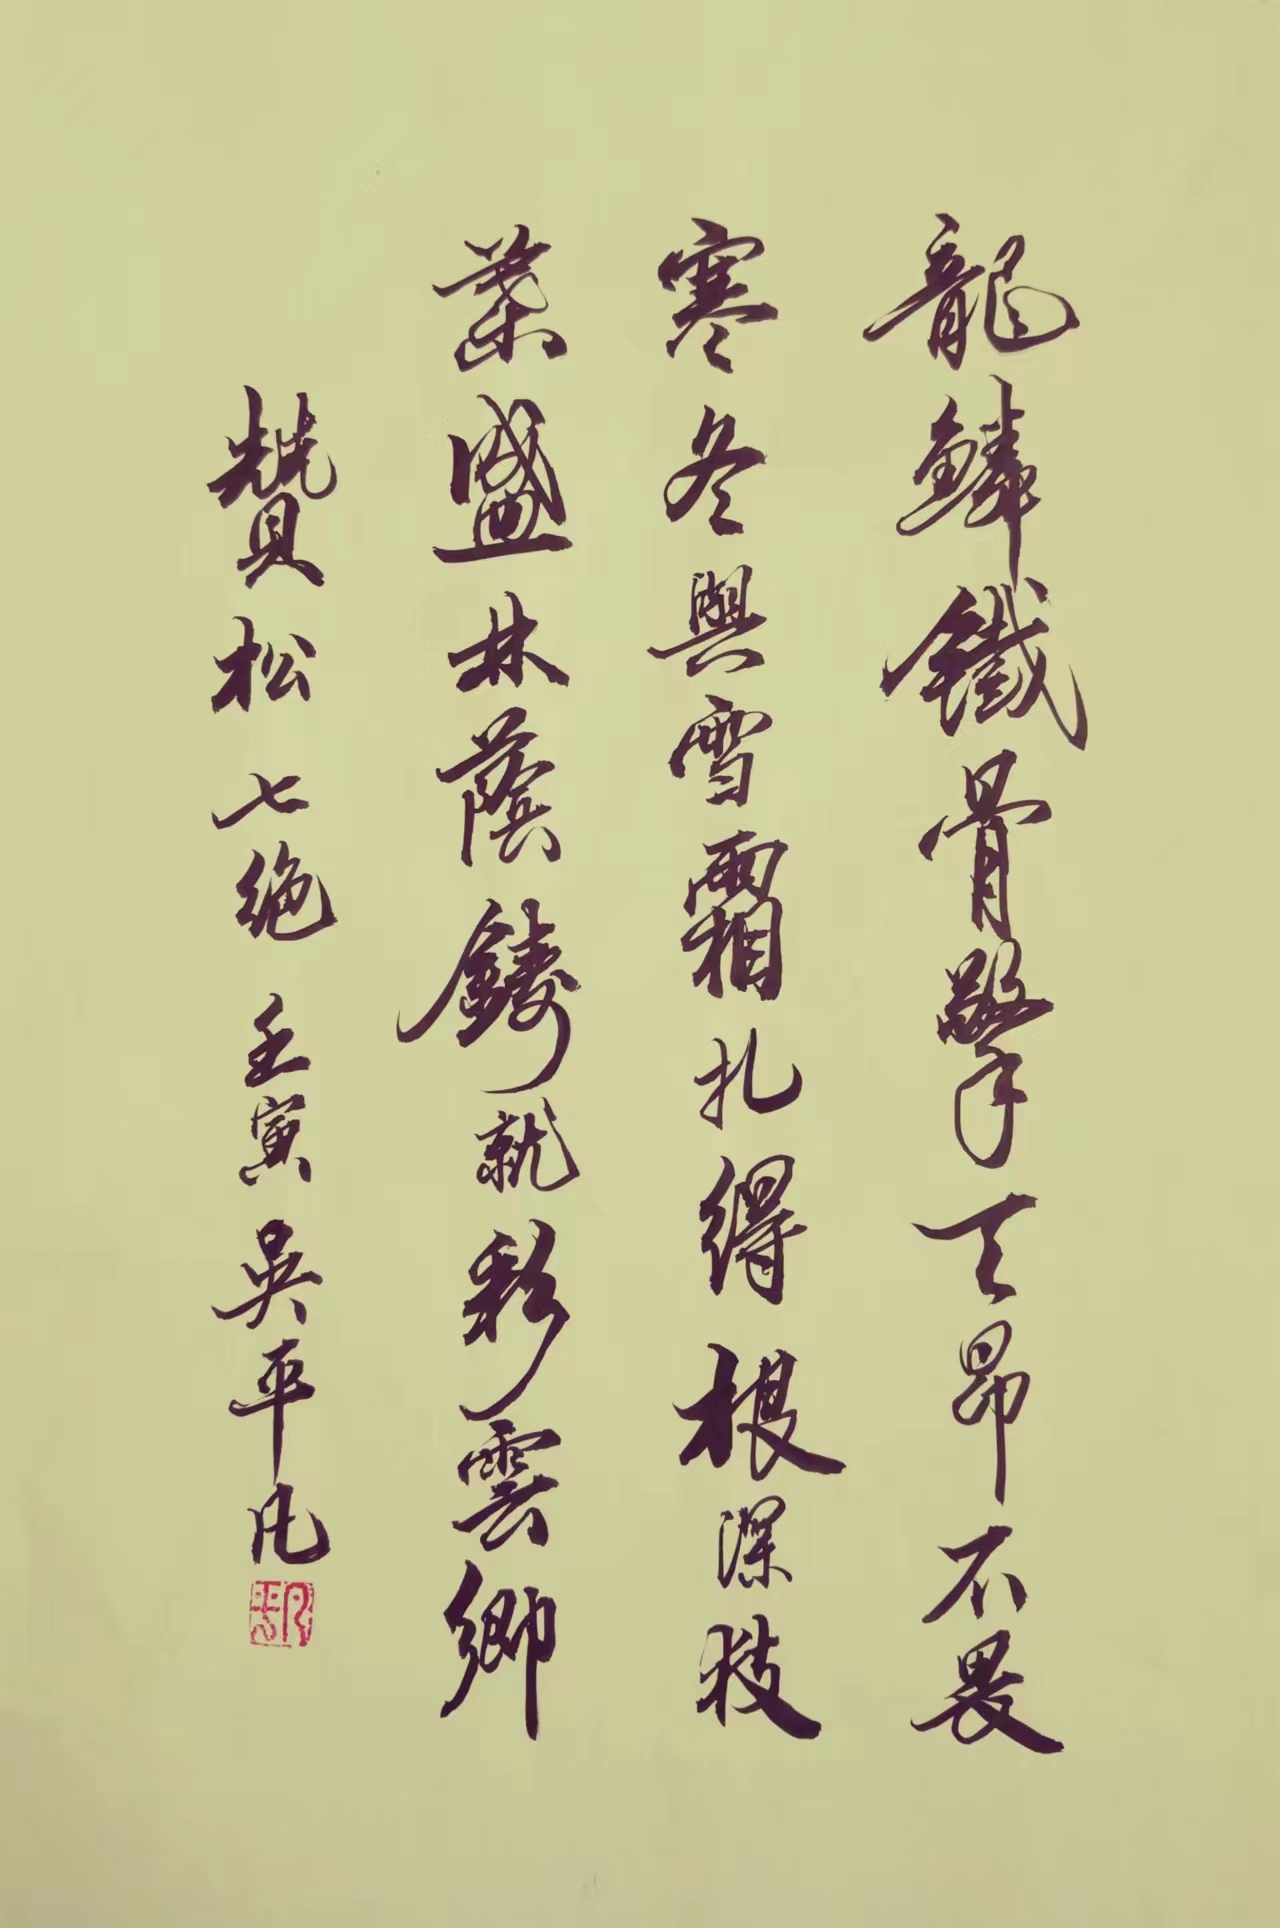 龍鱗鐵骨擎天昂不畏
寒冬與雪霜扎得根深枝
葉盛林蔭鑄就彩雲鄉
贊松七绝壬寅吳平凡